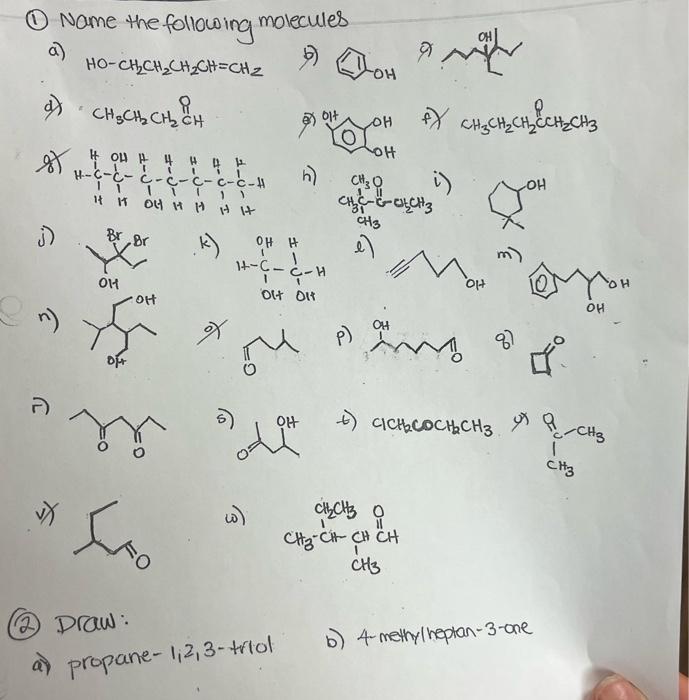 ① Name the following molecules
a) HO-CH2CH2CH2CH=CH2 b) OH c) OH
d) CH3CH2CH2CH O e) OH OH OH f) CH3CH2CH2CCH2CH3 O
g) H OH H H H H H
H-C-C-C-C-C-C-C-H
H H OH H H H H
h) CH3 O
CH3C-C-CH2CH3
CH3
i) OH
j) Br Br
OH
k) OH H
H-C-C-H
OH OH
l) OH m) OH
OH
n) OH
OH
o) O p) OH O q) O
r) O O s) OH O t) ClCH2COCH2CH3 u) O
C-CH3
CH3
v) O w) CH2CH3 O
CH3-CH-CH CH
CH3
② Draw:
a) propane-1,2,3-triol b) 4-methylheptan-3-one